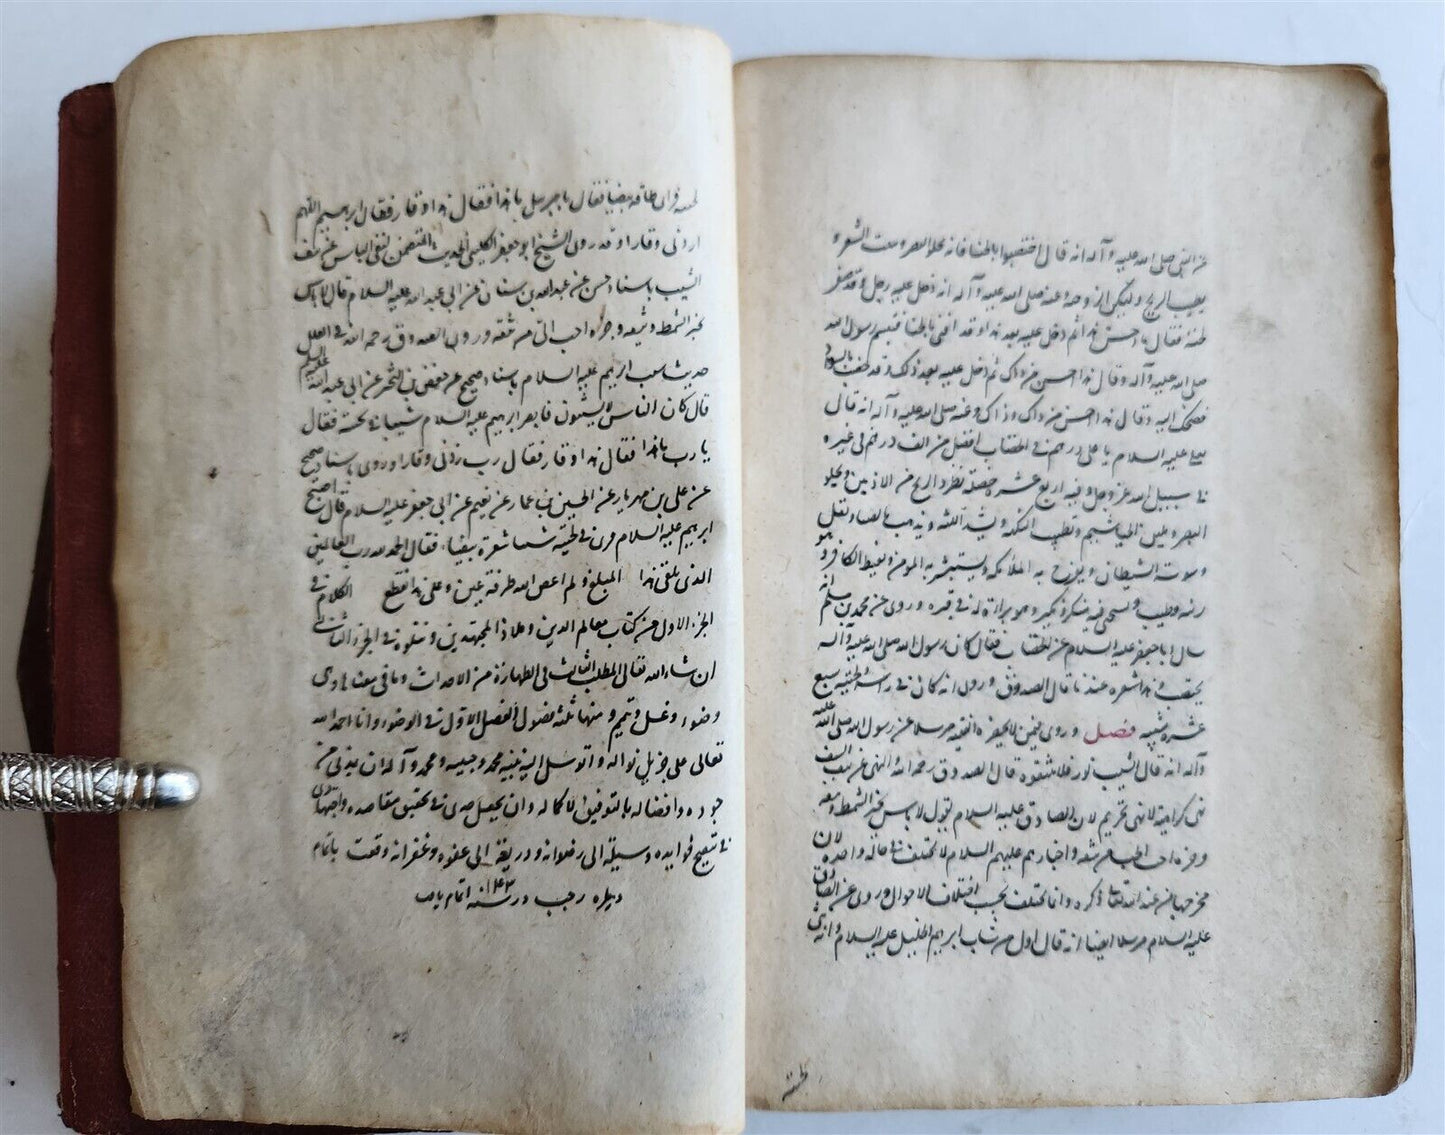 عن النبي صلى الله عليه وآله انه قال اختضبوا بالحنا فانه يجلو البصر وينبت الشعر و
يطيب الريح ويسكن الزوجة وعنه صلى الله عليه وآله انه دخل عليه رجل وقد صفر
لحيته فقال ما احسن هذا ثم دخل عليه بعد هذا وقد اقنى بالحنا فتبسم رسول الله
صلى الله عليه وآله وقال هذا احسن من ذاك ثم دخل عليه بعد ذلك وقد خضب بالسواد
فضحك اليه وقال هذا احسن من ذاك وذاك وعنه صلى الله عليه وآله انه قال
لعلي عليه السلام يا علي درهم في الخضاب افضل من الف درهم في غيره
في سبيل الله عز وجل وفيه اربع عشرة خصلة يطرد الريح من الاذنين ويجلو
البصر ويلين الخياشيم ويطيب النكهة ويشد اللثة ويذهب بالضنا ويقل
وسوسة الشيطان ويفرح به الملائكة ويستبشر به المؤمن ويغيظ الكافر وهو
زينة وطيب ويستحيي منه منكر ونكير وهو براءة له في قبره وروى عن محمد بن مسلم انه
سال ابا جعفر عليه السلام عن الخضاب فقال كان رسول الله صلى الله عليه وآله
يختضب وهذا شعره عندنا قال الصدوق وروى انه كان في راسه ولحيته سبع
عشرة شيبة فصل وروى في من لا يحضره الفقيه مرسلا عن رسول الله صلى الله عليه
وآله انه قال الشيب نور فلا تنتفوه قال الصدوق رحمه الله النهي عن نتف الشيب
نهي كراهية لا نهي تحريم لان الصادق عليه السلام يقول لا باس بجز الشمط ونتفه
وجزه احب الي من نتفه واخبارهم عليهم السلام لا تختلف في حالة واحدة لان
مخرجها من عند الله تعالى ذكره وانما تختلف بحسب اختلاف الاحوال وروى عن الصادق
عليه السلام مرسلا ايضا انه قال اول من شاب ابرهيم الخليل عليه السلام وانه ثنى
لحيته
لحيته فراى طاقة بيضا فقال يا جبرئيل ما هذا فقال هذا وقار فقال ابرهيم اللهم
زدني وقارا وقد روى الشيخ ابو جعفر الكليني الحديث المتضمن لنفي الباس عن نتف
الشيب باسناد حسن عن عبدالله بن سنان عن ابي عبد الله عليه السلام قال لا باس
بجز الشمط ونتفه وجزه احب الي من نتفه وروى الصدوق رحمه الله في العلل
حديث شيب ابرهيم عليه السلام باسناد صحيح عن حفص بن البختري عن ابي عبد الله عليه السلام
قال كان الناس لا يشيبون فابصر ابرهيم عليه السلام شيبا في لحيته فقال
يا رب ما هذا فقال هذا وقار فقال رب زدني وقارا وروى باسناد صحيح
عن علي بن مهزيار عن الحسين بن عمار عن نعيم عن ابي جعفر عليه السلام قال اصبح
ابرهيم عليه السلام فراى في لحيته شيبا شعرة بيضاء فقال الحمد لله رب العالمين
الذي بلغني هذا المبلغ ولم اعص الله طرفة عين وعلى هذا نقطع الكلام في
الجزء الاول من كتاب معالم الدين وملاذ المجتهدين ونتلوه في الجزء الثاني
ان شاء الله تعالى المطلب الثالث في الطهارة من الاحداث وما في معناها وهي
وضوء وغسل وتيمم وفيها ثلثة فصول الفصل الاول في الوضوء وانا احمد الله
تعالى على جزيل نواله واتوسل اليه بنبيه محمد وحبيبه ومحمد وآله ان يمدني من
جوده وافضاله بالتوفيق لاكماله وان يجعل جدي في تحقيق مقاصده واجتهادي
في تنقيح فوايده وسيلة الى رضوانه وذريعة الى عفوه وغفرانه وقعت باتمام
رجب در سنه ١٠٤٣ اتمام يافت